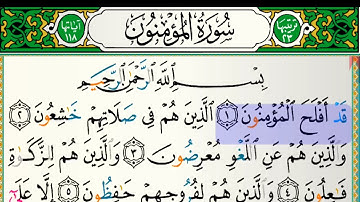 آياتها ١١٨ سُورَةُ الْمُؤْمِنُونَ ترتيبها ٢٣
بِسْمِ اللَّهِ الرَّحْمَٰنِ الرَّحِيمِ
قَدْ أَفْلَحَ الْمُؤْمِنُونَ ١ الَّذِينَ هُمْ فِي صَلَاتِهِمْ خَاشِعُونَ ٢
وَالَّذِينَ هُمْ عَنِ اللَّغْوِ مُعْرِضُونَ ٣ وَالَّذِينَ هُمْ لِلزَّكَوٰةِ
فَاعِلُونَ ٤ وَالَّذِينَ هُمْ لِفُرُوجِهِمْ حَافِظُونَ ٥ إِلَّا عَلَىٰ